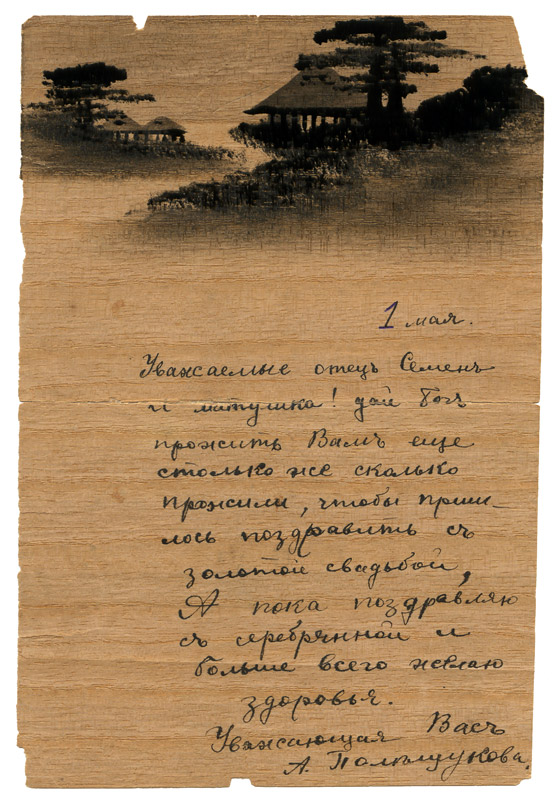 1 мая.
Уважаемые отецъ Семенъ
и матушка! дай Богъ
прожить Вамъ еще
столько же сколько
прожили, чтобы приш-
лось поздравить съ
золотой свадьбой,
А пока поздравляю
съ серебрянной и
больше всего желаю
здоровья.
Уважающая Васъ
А. Полищукова.